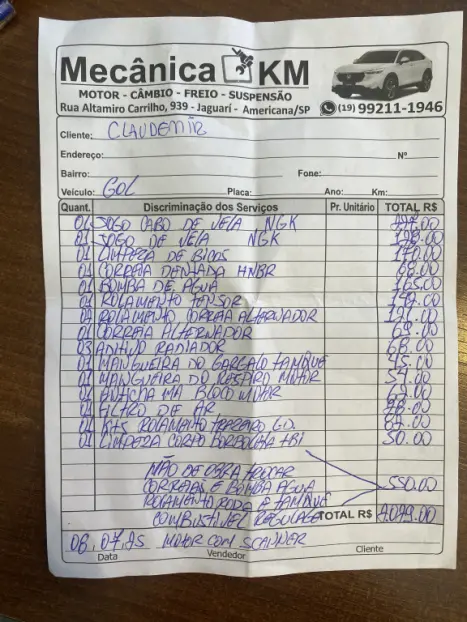 Mecânica KM
MOTOR - CÂMBIO - FREIO - SUSPENSÃO
Rua Altamiro Carrilho, 939 - Jaguarí - Americana/SP (19) 99211-1946
Cliente: CLAUDEMIR
Endereço: Nº
Bairro: Fone:
Veículo: GOL Placa: Ano: Km:
Quant. Discriminação dos Serviços Pr. Unitário TOTAL R$
01 JOGO CABO DE VELA NGK
01 JOGO DE VELA NGK 128.00
01 LIMPEZA DE BICOS 170.00
01 CORREIA DENTADA HNBR 68.00
01 BOMBA DE AGUA 165.00
01 ROLAMENTO TENSOR
01 ROLAMENTO CORREIA ALTERNADOR
01 CORREIA ALTERNADOR 69.00
03 ADITIVO RADIADOR 68.00
01 MANGUEIRA DO GARGALO TANQUE 95.00
01 MANGUEIRA DO RESPIRO MOTOR
01 BLOCO MOTOR 69.00
01 FILTRO DE AR
01 KITS ROLAMENTO TRAZEIRO
01 LIMPEZA CORPO BORBOLETA TBI 50.00
MÃO DE OBRA TROCAR
CORREIAS E BOMBA AGUA 550.00
ROLAMENTO RODA E TANQUE
COMBUSTIVEL REGULAGE TOTAL R$
08.07.25 MOTOR COM SCANNER
Data Vendedor Cliente